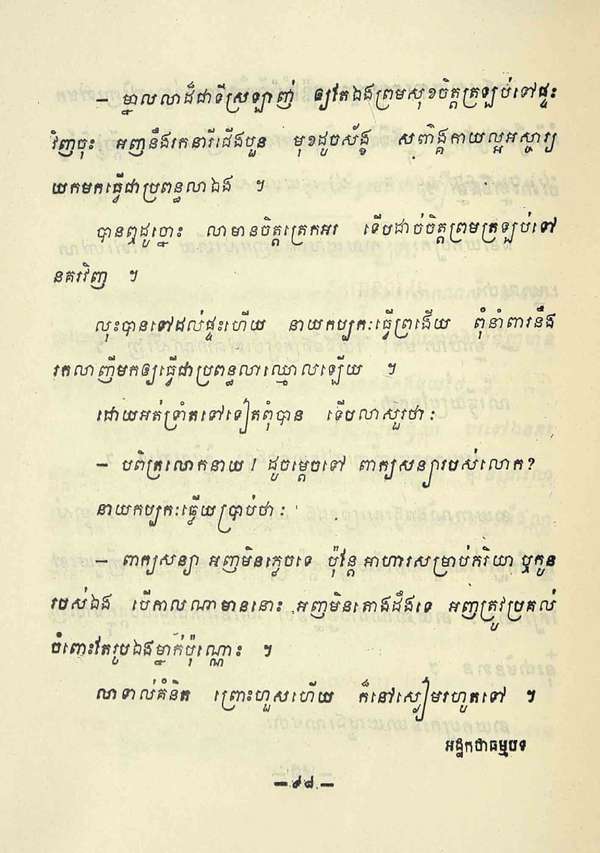 — ម្នាលលាដ៏ជាទីស្រឡាញ់ ឲ្យតែឯងព្រមសុខចិត្តត្រឡប់ទៅផ្ទះ
វិញចុះ អញនឹងរកនារីជើងបួន មុខដូចស័ង្ខ សព៌ាង្គកាយល្អអស្ចារ្យ
យកមកធ្វើជាប្រពន្ធលាឯង ។
បានឮដូច្នោះ លាមានចិត្តត្រេកអរ ទើបដាច់ចិត្តព្រមត្រឡប់ទៅ
នគរវិញ ។
លុះបានទៅដល់ផ្ទះហើយ នាយកប្បកៈធ្វើព្រងើយ ពុំនាំពារនឹង
រកលាញីមកឲ្យធ្វើជាប្រពន្ធលាឈ្មោលឡើយ ។
ដោយអត់ទ្រាំតទៅទៀតពុំបាន ទើបលាសួរថា:
— បពិត្រលោកនាយ ! ដូចម្ដេចទៅ ពាក្យសន្យារបស់លោក?
នាយកប្បកៈឆ្លើយប្រាប់ថា:
— ពាក្យសន្យា អញមិនភ្លេចទេ ប៉ុន្តែ អាហារសម្រាប់ភរិយា ឬកូន
របស់ឯង បើកាលណាមាននោះ អញមិនតោងដឹងទេ អញត្រូវប្រគល់
ចំពោះតែរូបឯងម្នាក់ប៉ុណ្ណោះ ។
លាទាល់គំនិត ព្រោះហួសហើយ ក៏នៅស្ងៀមរហូតទៅ ។
អដ្ឋកថាធម្មបទ
— ៩៨ —